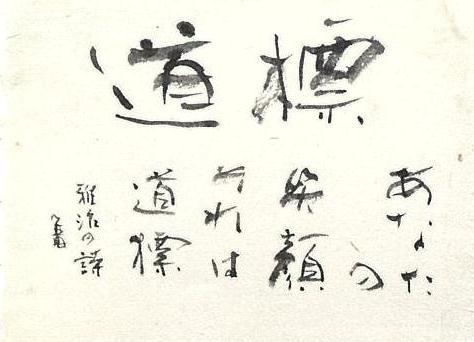 道標
あなたの
笑顔
それは
道標
雅治の詩